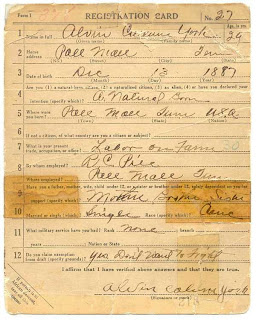 Form 1 REGISTRATION CARD No. 27
1 Name in full Alvin Cullium York Age, in yrs. 29
2 Home address Pall Mall Tenn
3 Date of birth Dec 13 1887
Are you (1) a natural-born citizen, (2) a naturalized citizen, (3) an alien, (4) or have you declared your
4 intention (specify which)? A. Natural Born
5 Where were you born? Pall Mall Tenn USA
6 If not a citizen, of what country are you a citizen or subject?
7 What is your present trade, occupation, or office? Labor on Farm
8 By whom employed? R. C. Pile
Where employed? Pall Mall Tenn
9 Have you a father, mother, wife, child under 12, or a sister or brother under 12, solely dependent on you for
support (specify which)? Mother Brother Sister
10 Married or single (which)? Single Race (specify which)?
11 What military service have you had? Rank None branch
years Nation or State
12 Do you claim exemption from draft (specify grounds)? Yes. Don't Want To Fight
I affirm that I have verified above answers and that they are true.
Alvin Cullium York